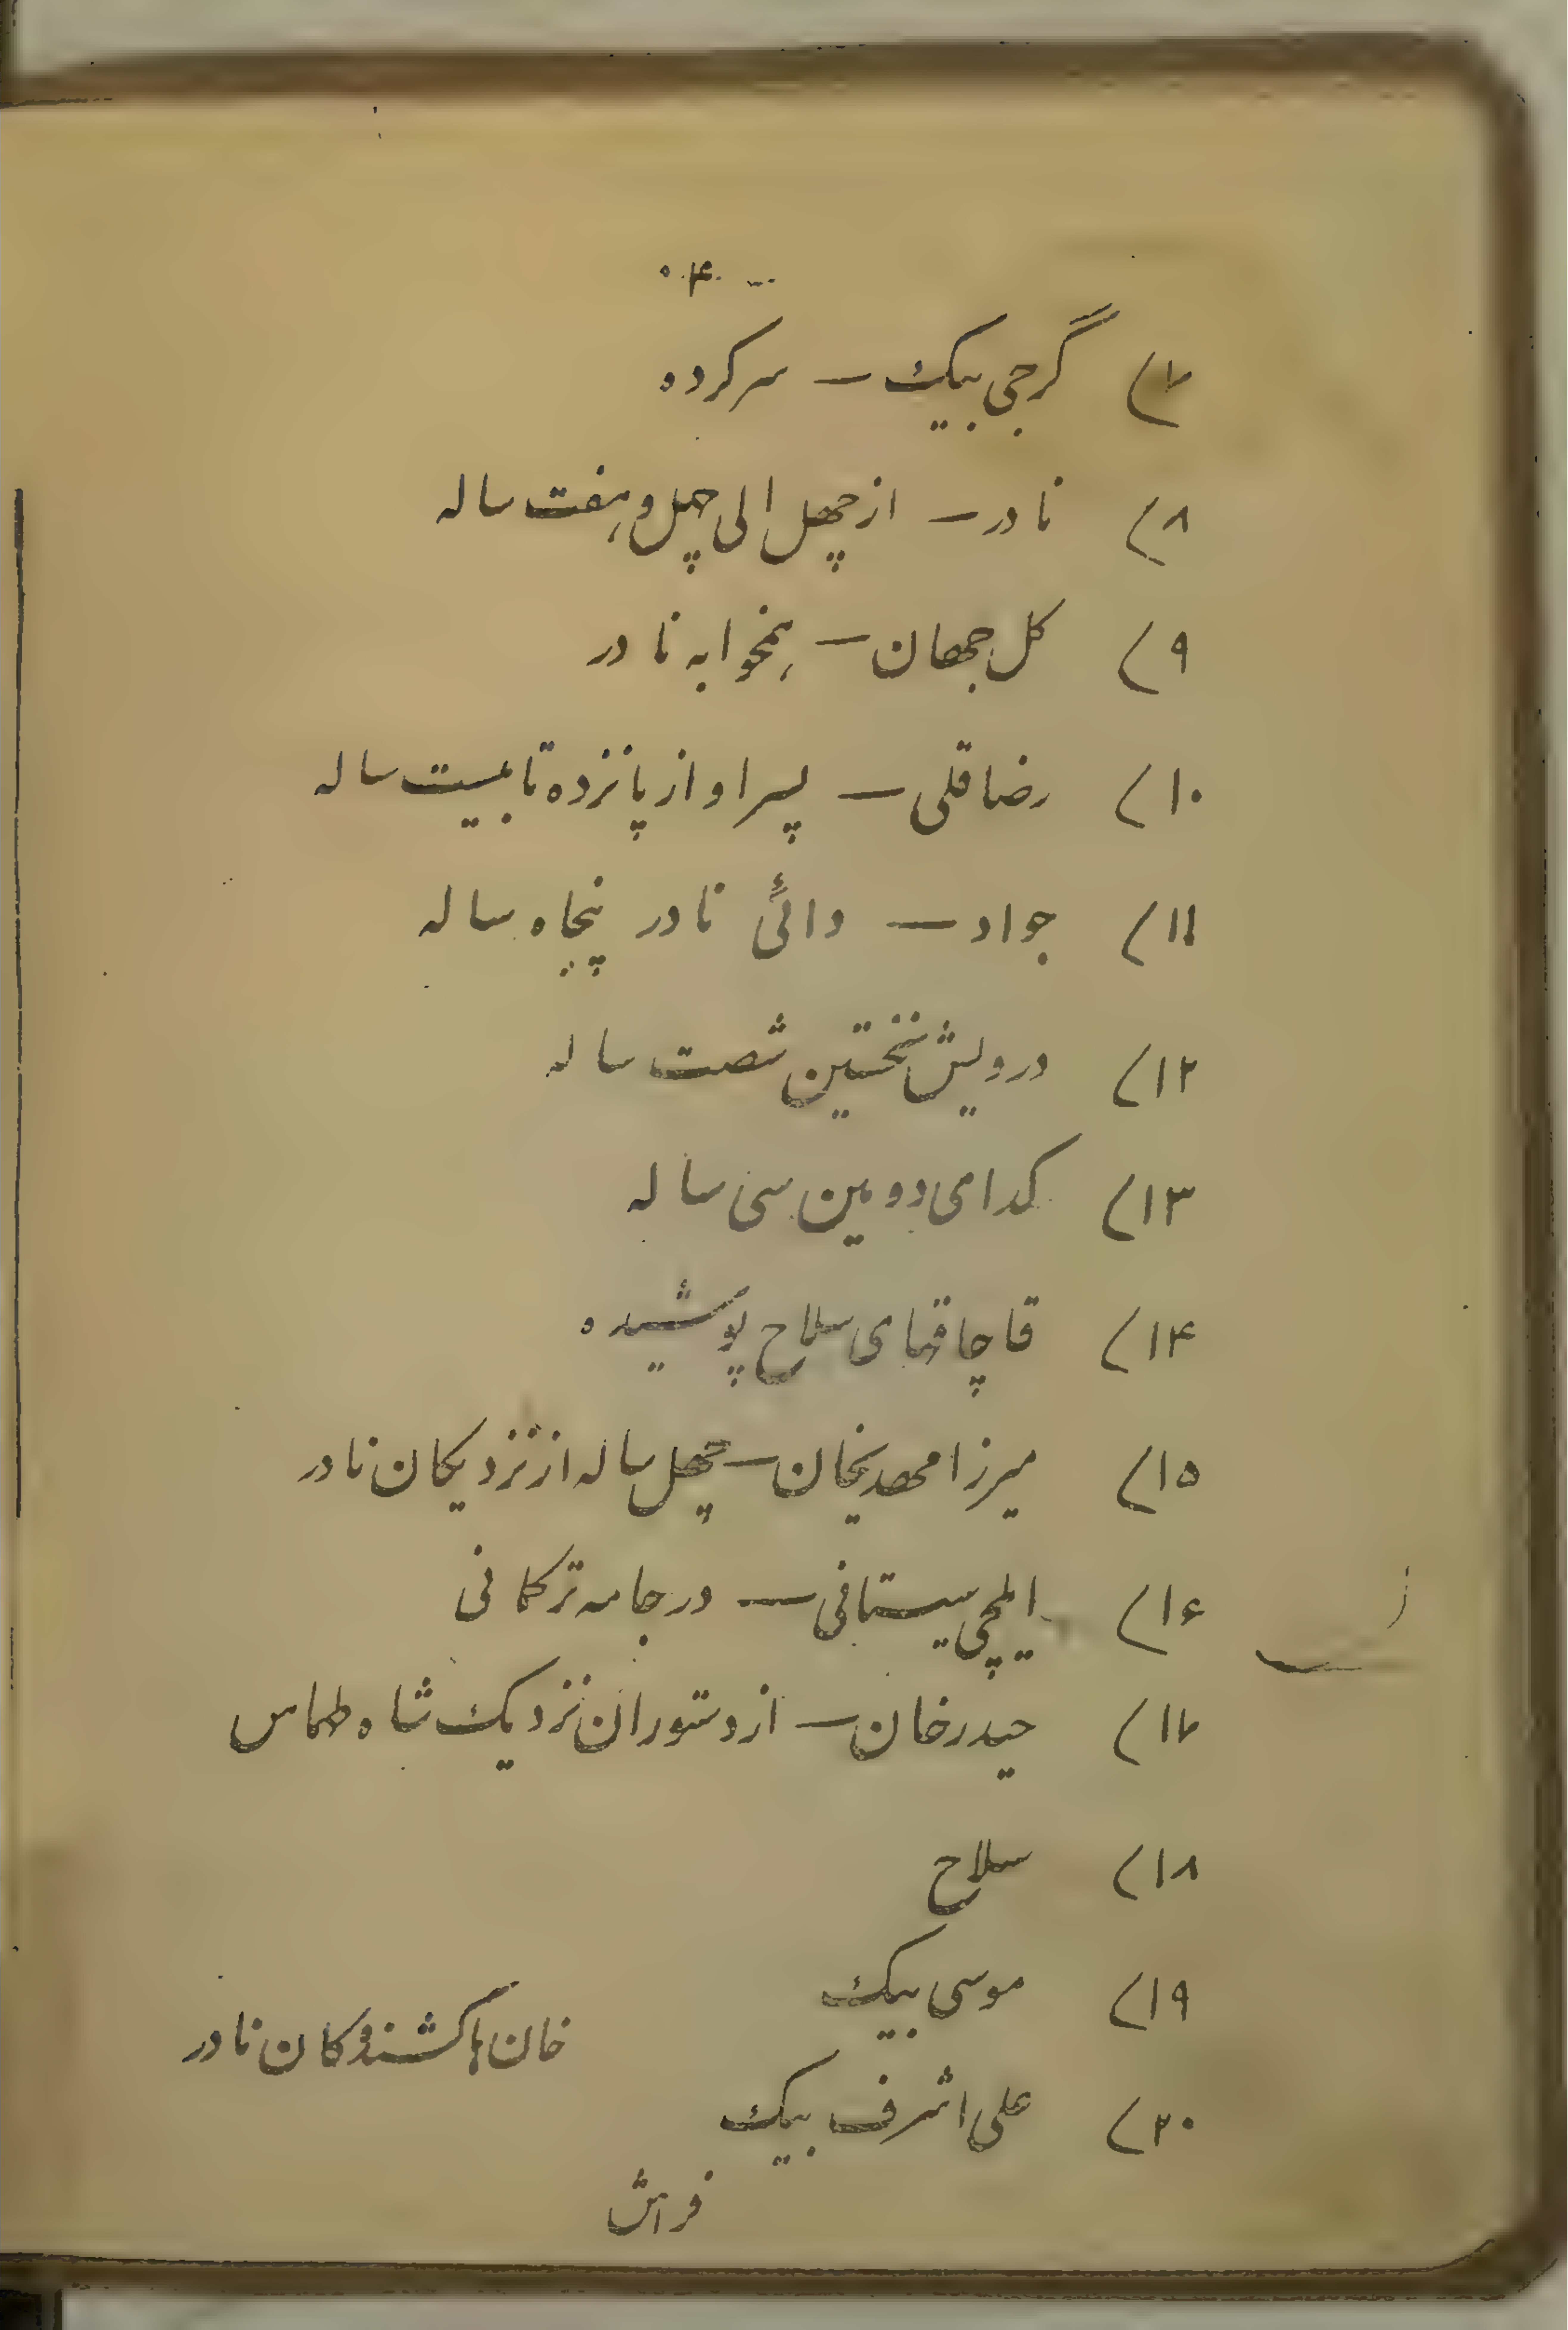 ۴
۷) گرجی بیک — سرکرده
۸) نادر — از چهل الی چهل و هفت ساله
۹) کل جهان — همخوابه نادر
۱۰) رضا قلی — پسر او از پانزده تا بیست ساله
۱۱) جواد — دائی نادر پنجاه ساله
۱۲) درویش نخستین شصت ساله
۱۳) کدامی دومین سی ساله
۱۴) قاچاقهای سلاح پوشیده
۱۵) میرزا مهدیخان — چهل ساله از نزدیکان نادر
۱۶) ایلچی سیستانی — در جامه ترکمانی
۱۷) حیدر خان — از دستوران نزدیک شاه طهماس
۱۸) سلاح
۱۹) موسی بیک
خان‌ها کشندکان نادر
۲۰) علی اشرف بیک
فراش